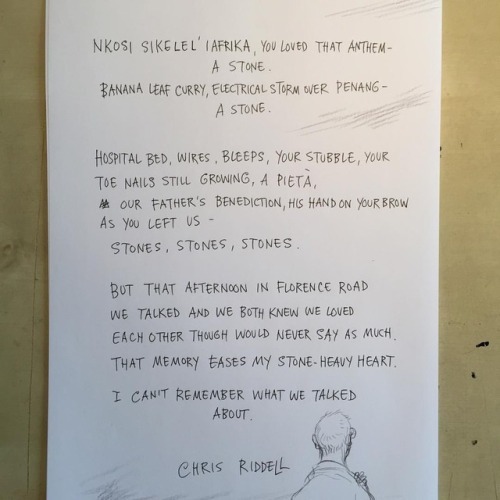 NKOSI SIKELEL' IAFRIKA, YOU LOVED THAT ANTHEM-
A STONE.
BANANA LEAF CURRY, ELECTRICAL STORM OVER PENANG-
A STONE.
HOSPITAL BED, WIRES, BLEEPS, YOUR STUBBLE, YOUR
TOE NAILS STILL GROWING, A PIETÀ,
OUR FATHER'S BENEDICTION, HIS HAND ON YOUR BROW
AS YOU LEFT US -
STONES, STONES, STONES.
BUT THAT AFTERNOON IN FLORENCE ROAD
WE TALKED AND WE BOTH KNEW WE LOVED
EACH OTHER THOUGH WOULD NEVER SAY AS MUCH.
THAT MEMORY EASES MY STONE-HEAVY HEART.
I CAN'T REMEMBER WHAT WE TALKED
ABOUT.
CHRIS RIDDELL